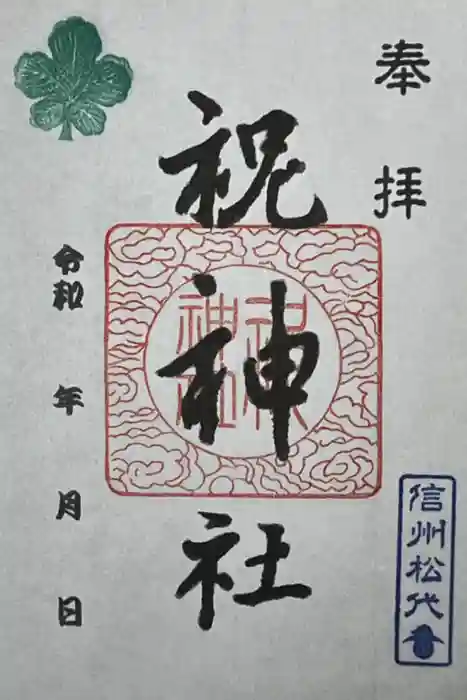 奉拝
祝神社
令和 年 月 日
信州松代